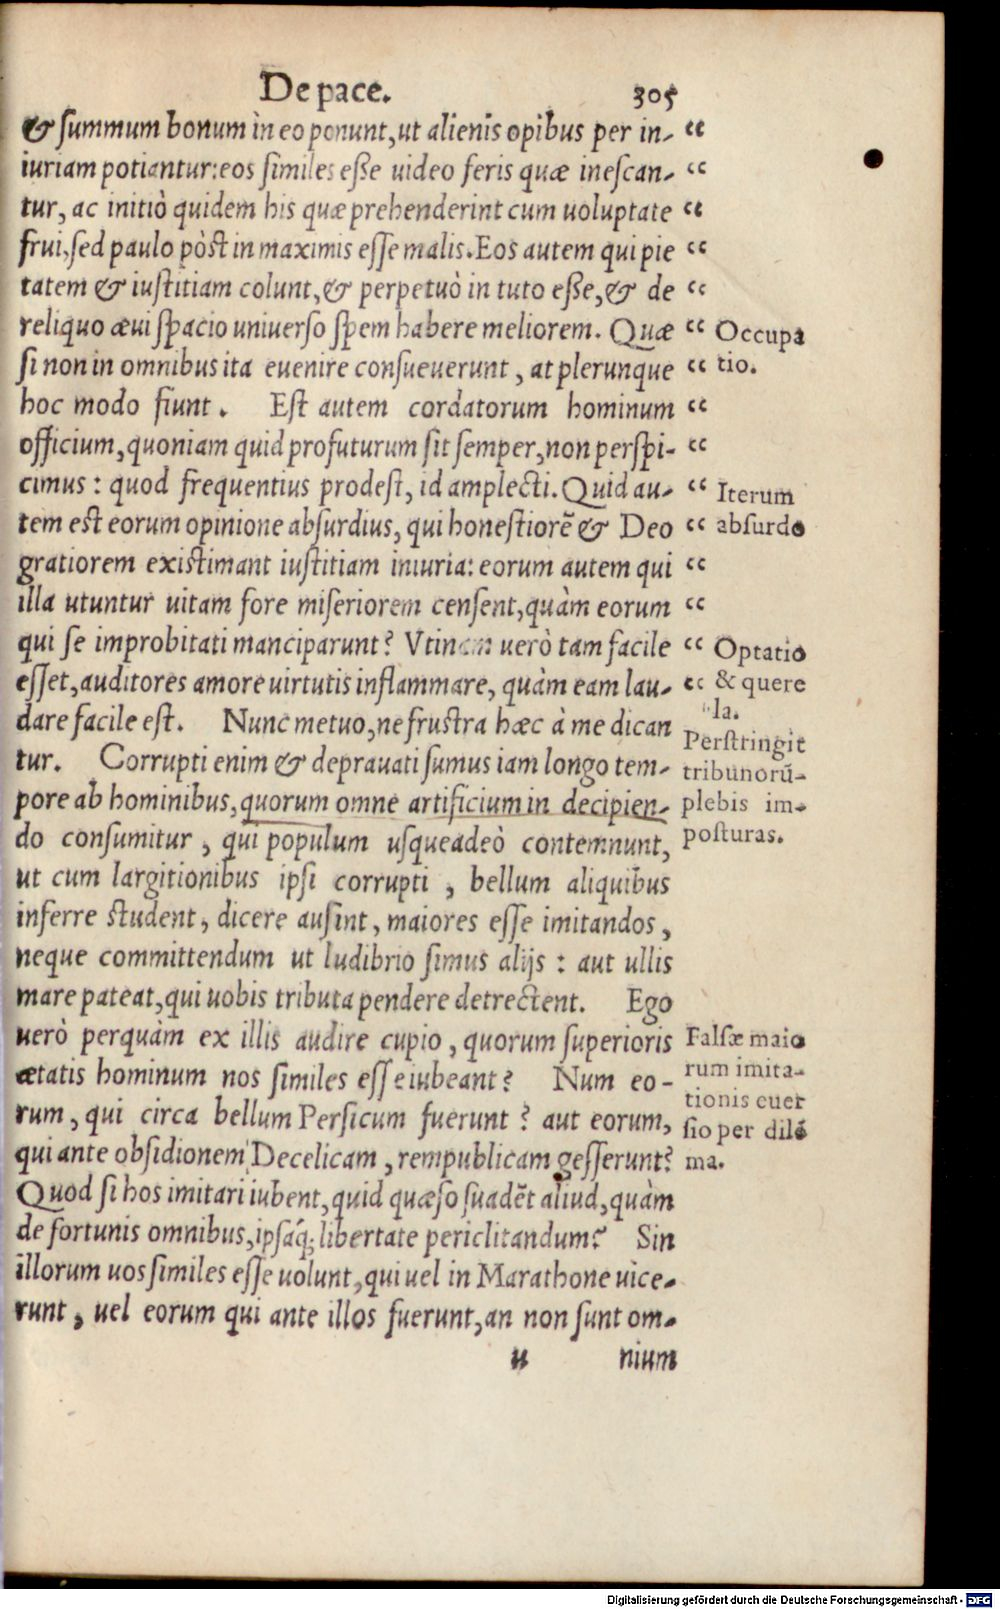 De pace. 305
& summum bonum in eo ponunt, ut alienis opibus per in- “
iuriam potiantur: eos similes esse uideo feris quæ inescan- “
tur, ac initiò quidem his quæ prehenderint cum uoluptate “
frui, sed paulo pòst in maximis esse malis. Eos autem qui pie “
tatem & iustitiam colunt, & perpetuò in tuto esse, & de “
reliquo æui spacio uniuerso spem habere meliorem. Quæ “ Occupa
si non in omnibus ita euenire consueuerunt, at plerunque “ tio.
hoc modo fiunt. Est autem cordatorum hominum “
officium, quoniam quid profuturum sit semper, non perspi- “
cimus: quod frequentius prodest, id amplecti. Quid au- “ Iterum
tem est eorum opinione absurdius, qui honestiorē & Deo “ absurdo
gratiorem existimant iustitiam iniuria: eorum autem qui “
illa utuntur uitam fore miseriorem censent, quàm eorum “
qui se improbitati manciparunt? Vtinam uerò tam facile “ Optatio
esset, auditores amore uirtutis inflammare, quàm eam lau- “ & quere
dare facile est. Nunc metuo, ne frustra hæc à me dican la.
tur. Corrupti enim & deprauati sumus iam longo tem- Perstringit
pore ab hominibus, quorum omne artificium in decipien- tribunorū-
do consumitur, qui populum usqueadeò contemnunt, plebis im-
ut cum largitionibus ipsi corrupti, bellum aliquibus posturas.
inferre student, dicere ausint, maiores esse imitandos,
neque committendum ut ludibrio simus alijs: aut ullis
mare pateat, qui uobis tributa pendere detrectent. Ego
uerò perquàm ex illis audire cupio, quorum superioris Falsæ maio
ætatis hominum nos similes esse iubeant? Num eo- rum imita-
rum, qui circa bellum Persicum fuerunt? aut eorum, tionis euer
qui ante obsidionem Decelicam, rempublicam gesserunt? sio per dilé
Quod si hos imitari iubent, quid quæso suadēt aliud, quàm ma.
de fortunis omnibus, ipsáq; libertate periclitandum? Sin
illorum uos similes esse uolunt, qui uel in Marathone uice-
runt, uel eorum qui ante illos fuerunt, an non sunt om-
u nium
Digitalisierung gefördert durch die Deutsche Forschungsgemeinschaft - DFG